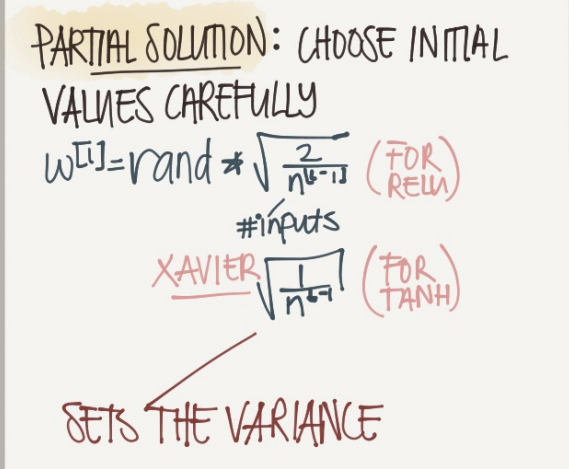 PARTIAL SOLUTION: CHOOSE INITIAL
VALUES CAREFULLY
W[l]=rand * √2/n[l-1] (FOR
RELU)
#inputs
XAVIER √1/n[l-1 (FOR
TANH)
SETS THE VARIANCE